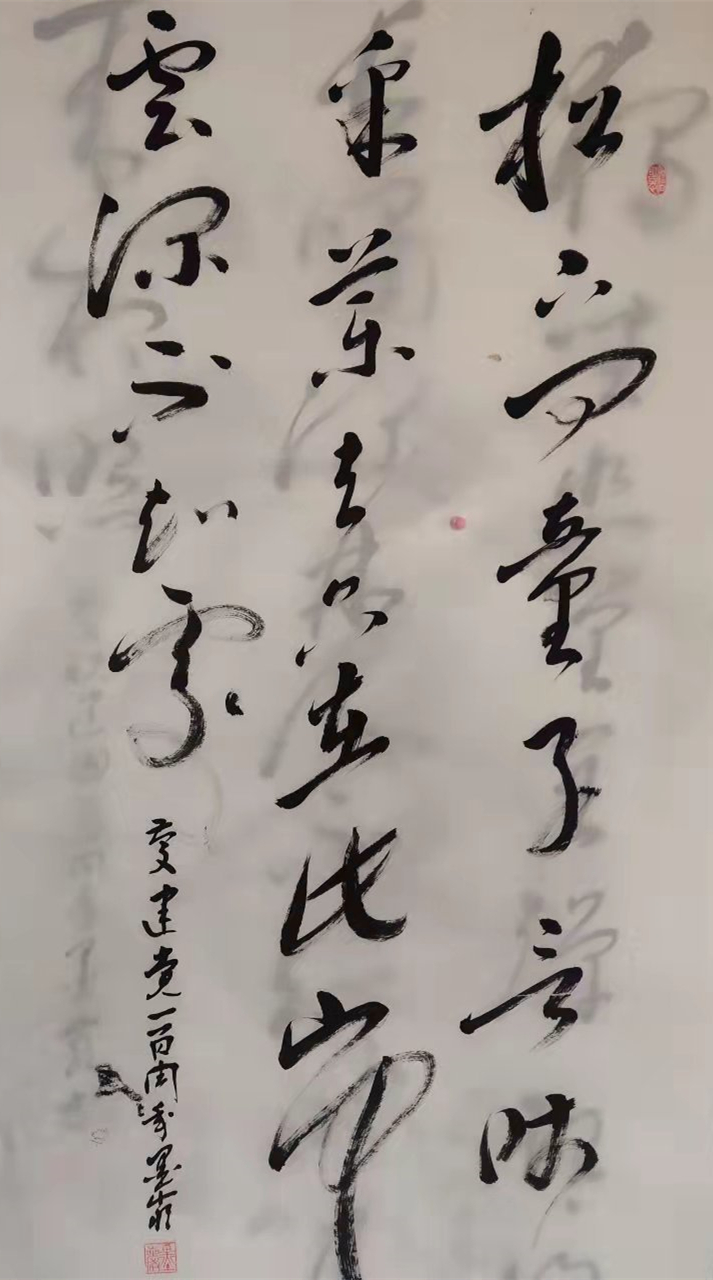 松下问童子言师
采药去只在此山中
雲深不知處
庆建党一百周年墨